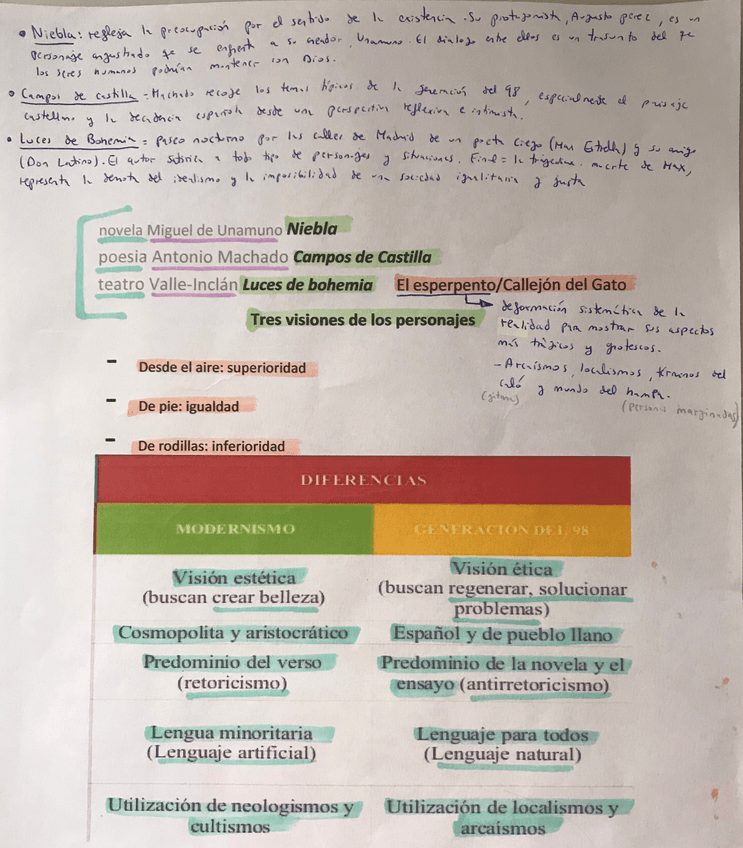 • Niebla: refleja la preocupación por el sentido de la existencia. Su protagonista, Augusto perez, es un
personaje angustiado qe se enfrenta a su creador, Unamuno. El dialogo entre ellos es un trasunto del qe
los seres humanos podrían mantener con Dios.
• Campos de castilla = Machado recoge los temas típicos de la generación del 98, especialmente el paisaje
castellano y la decadencia española desde una perspectiva reflexiva e intimista.
• Luces de Bohemia = paseo nocturno por las calles de Madrid de un poeta ciego (Max Estrella) y su amigo
(Don Latino). El autor satiriza a todo tipo de personajes y situaciones. Final = la trágica muerte de Max,
representa la derrota del idealismo y la imposibilidad de una sociedad igualitaria y justa
novela Miguel de Unamuno Niebla
poesia Antonio Machado Campos de Castilla
teatro Valle-Inclán Luces de bohemia El esperpento/Callejón del Gato
deformación sistemática de la
realidad para mostrar sus aspectos
más trágicos y grotescos.
- Arcaísmos, localismos, términos del
caló y mundo del hampa.
(gitano) (personas marginadas)
Tres visiones de los personajes
- Desde el aire: superioridad
- De pie: igualdad
- De rodillas: inferioridad
DIFERENCIAS
MODERNISMO GENERACIÓN DEL 98
Visión estética
(buscan crear belleza)
Visión ética
(buscan regenerar, solucionar
problemas)
Cosmopolita y aristocrático
Español y de pueblo llano
Predominio del verso
(retoricismo)
Predominio de la novela y el
ensayo (antirretoricismo)
Lengua minoritaria
(Lenguaje artificial)
Lenguaje para todos
(Lenguaje natural)
Utilización de neologismos y
cultismos
Utilización de localismos y
arcaísmos